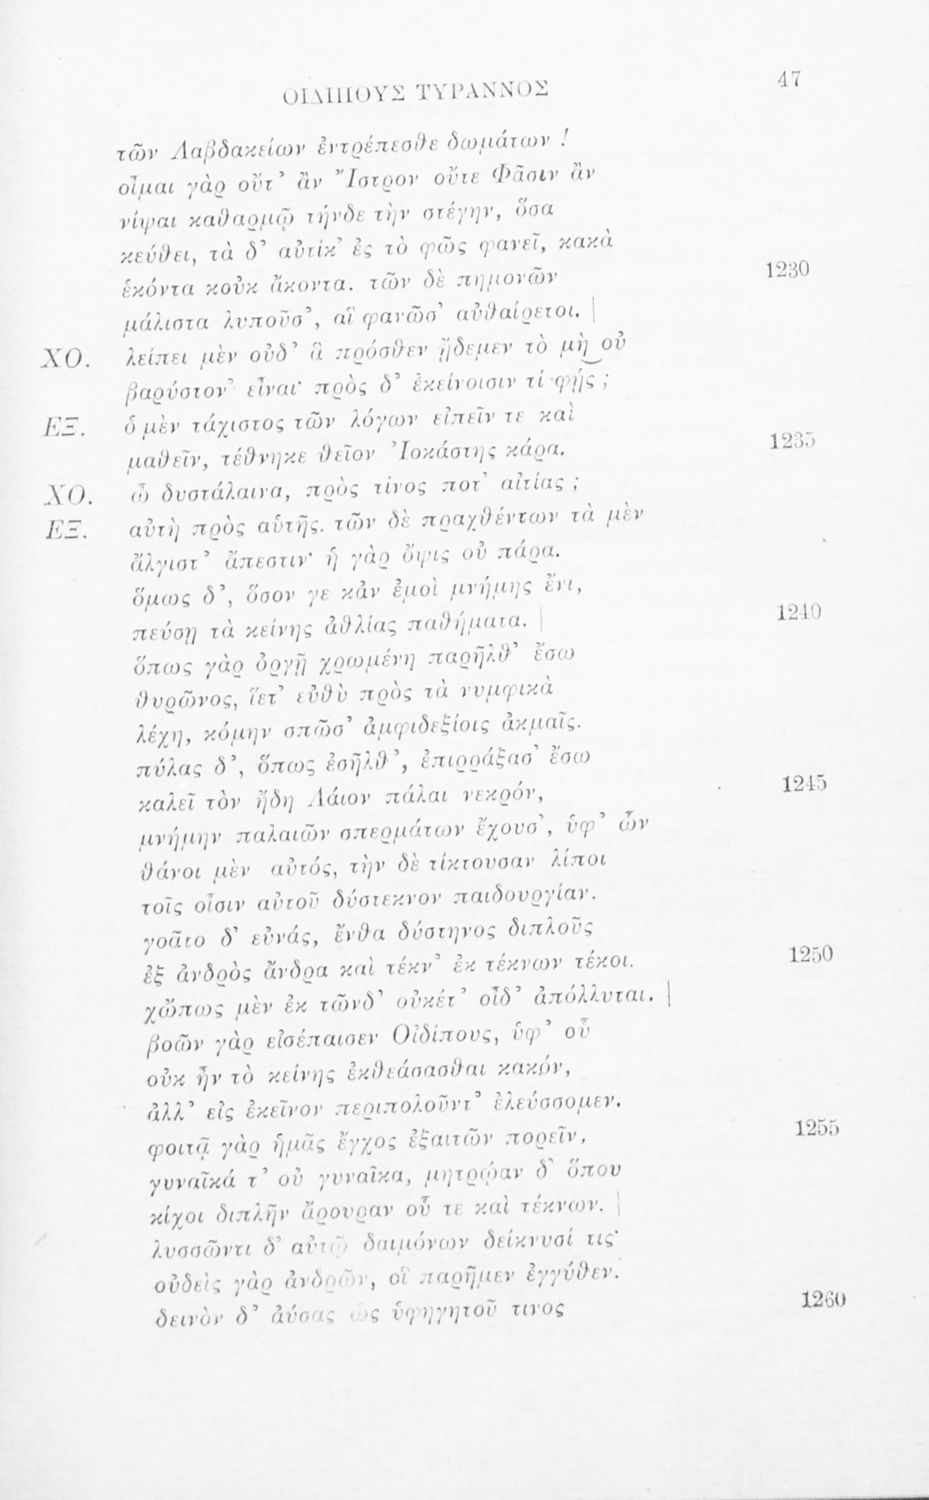 ΟΙΔΙΠΟΥΣ ΤΥΡΑΝΝΟΣ 47
τῶν Λαβδακείων ἐντρέπεσθε δωμάτων !
οἶμαι γὰρ οὔτ’ ἂν Ἴστρον οὔτε Φᾶσιν ἂν
νίψαι καθαρμῷ τήνδε τὴν στέγην, ὅσα
κεύθει, τὰ δ’ αὐτίκ’ ἐς τὸ φῶς φανεῖ, κακὰ
ἑκόντα κοὐκ ἄκοντα. τῶν δὲ πημονῶν 1230
μάλιστα λυποῦσ’, αἳ φανῶσ’ αὐθαίρετοι.
ΧΟ. λείπει μὲν οὐδ’ ἃ πρόσθεν ᾔδεμεν τὸ μὴ‿οὐ
βαρύστον’ εἶναι· πρὸς δ’ ἐκείνοισιν τί φῄς ;
ΕΞ. ὁ μὲν τάχιστος τῶν λόγων εἰπεῖν τε καὶ
μαθεῖν, τέθνηκε θεῖον Ἰοκάστης κάρα. 1235
ΧΟ. ὦ δυστάλαινα, πρὸς τίνος ποτ’ αἰτίας ;
ΕΞ. αὐτὴ πρὸς αὑτῆς. τῶν δὲ πραχθέντων τὰ μὲν
ἄλγιστ’ ἄπεστιν· ἡ γὰρ ὄψις οὐ πάρα.
ὅμως δ’, ὅσον γε κἀν ἐμοὶ μνήμης ἔνι,
πεύσῃ τὰ κείνης ἀθλίας παθήματα. 1240
ὅπως γὰρ ὀργῇ χρωμένη παρῆλθ’ ἔσω
θυρῶνος, ἵετ’ εὐθὺ πρὸς τὰ νυμφικὰ
λέχη, κόμην σπῶσ’ ἀμφιδεξίοις ἀκμαῖς.
πύλας δ’, ὅπως ἐσῆλθ’, ἐπιρράξασ’ ἔσω
καλεῖ τὸν ἤδη Λάιον πάλαι νεκρόν, 1245
μνήμην παλαιῶν σπερμάτων ἔχουσ’, ὑφ’ ὧν
θάνοι μὲν αὐτός, τὴν δὲ τίκτουσαν λίποι
τοῖς οἷσιν αὐτοῦ δύστεκνον παιδουργίαν.
γοᾶτο δ’ εὐνάς, ἔνθα δύστηνος διπλοῦς
ἐξ ἀνδρὸς ἄνδρα καὶ τέκν’ ἐκ τέκνων τέκοι. 1250
χὤπως μὲν ἐκ τῶνδ’ οὐκέτ’ οἶδ’ ἀπόλλυται.
βοῶν γὰρ εἰσέπαισεν Οἰδίπους, ὑφ’ οὗ
οὐκ ἦν τὸ κείνης ἐκθεάσασθαι κακόν,
ἀλλ’ εἰς ἐκεῖνον περιπολοῦντ’ ἐλεύσσομεν.
φοιτᾷ γὰρ ἡμᾶς ἔγχος ἐξαιτῶν πορεῖν, 1255
γυναῖκά τ’ οὐ γυναῖκα, μητρῴαν δ’ ὅπου
κίχοι διπλῆν ἄρουραν οὗ τε καὶ τέκνων.
λυσσῶντι δ’ αὐτῷ δαιμόνων δείκνυσί τις·
οὐδεὶς γὰρ ἀνδρῶν, οἳ παρῆμεν ἐγγύθεν.
δεινὸν δ’ ἀύσας ὡς ὑφηγητοῦ τινος 1260